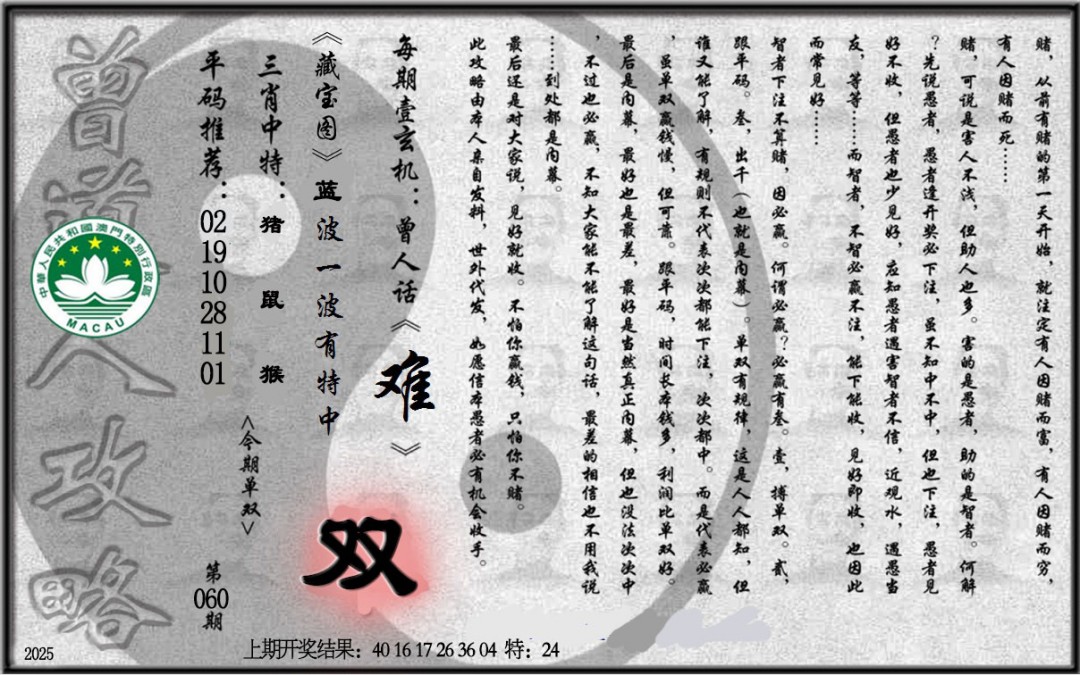 赌，从前有赌的第一天开始，就注定有人因赌而富，有人因赌而穷，
有人因赌而死……
赌，可说是害人不浅，但助人也多。害的是愚者，助的是智者。何解
？先说愚者，愚者逢开奖必下注，虽不知中不中，但也下注，愚者见
好不收，但愚者也少见好，应知愚者遇害智者不信，近观水，遇愚当
友，等等……而智者，不智必赢不注，能下能收，见好即收，也因此
而常见好……
智者下注不算赌，因必赢。何谓必赢？必赢有叁。壹，搏单双。贰，
跟平码。叁，出千（也就是内幕）。单双有规律，这是人人都知，但
谁又能了解，有规则不代表次次都能下注，次次都中。而是代表必赢
，虽单双赢钱慢，但可靠。跟平码，时间长本钱多，利润比单双好。
最后是内幕，最好也是最差，最好是当然真正内幕，但也没法次次中
，不过也必赢，不知大家能不能了解这句话，最差的相信也不用我说
……到处都是内幕。
最后还是对大家说，见好就收。不怕你赢钱，只怕你不赌。
此攻略由本人亲自发料，世外代发，如愿信本愚者必有机会收手。
每期壹玄机：曾人话《难》
《藏宝图》蓝波一波有特中
双
三肖中特：猪 鼠 猴
<今期单双>
平码推荐：02 19 10 28 11 01
第060期
曾道人攻略
中華人民共和國澳門特別行政區
MACAU
2025
上期开奖结果：40 16 17 26 36 04 特：24